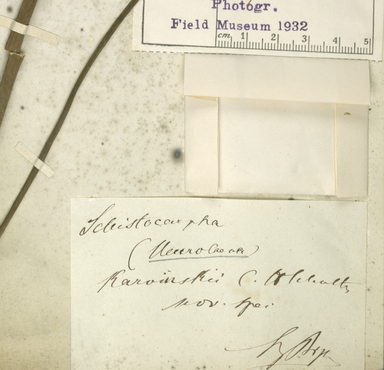 Photogr.
Field Museum 1932
cm 1 2 3 4 5
Schistocarpha
Karvinskii C. H. Schultz
nov. spec